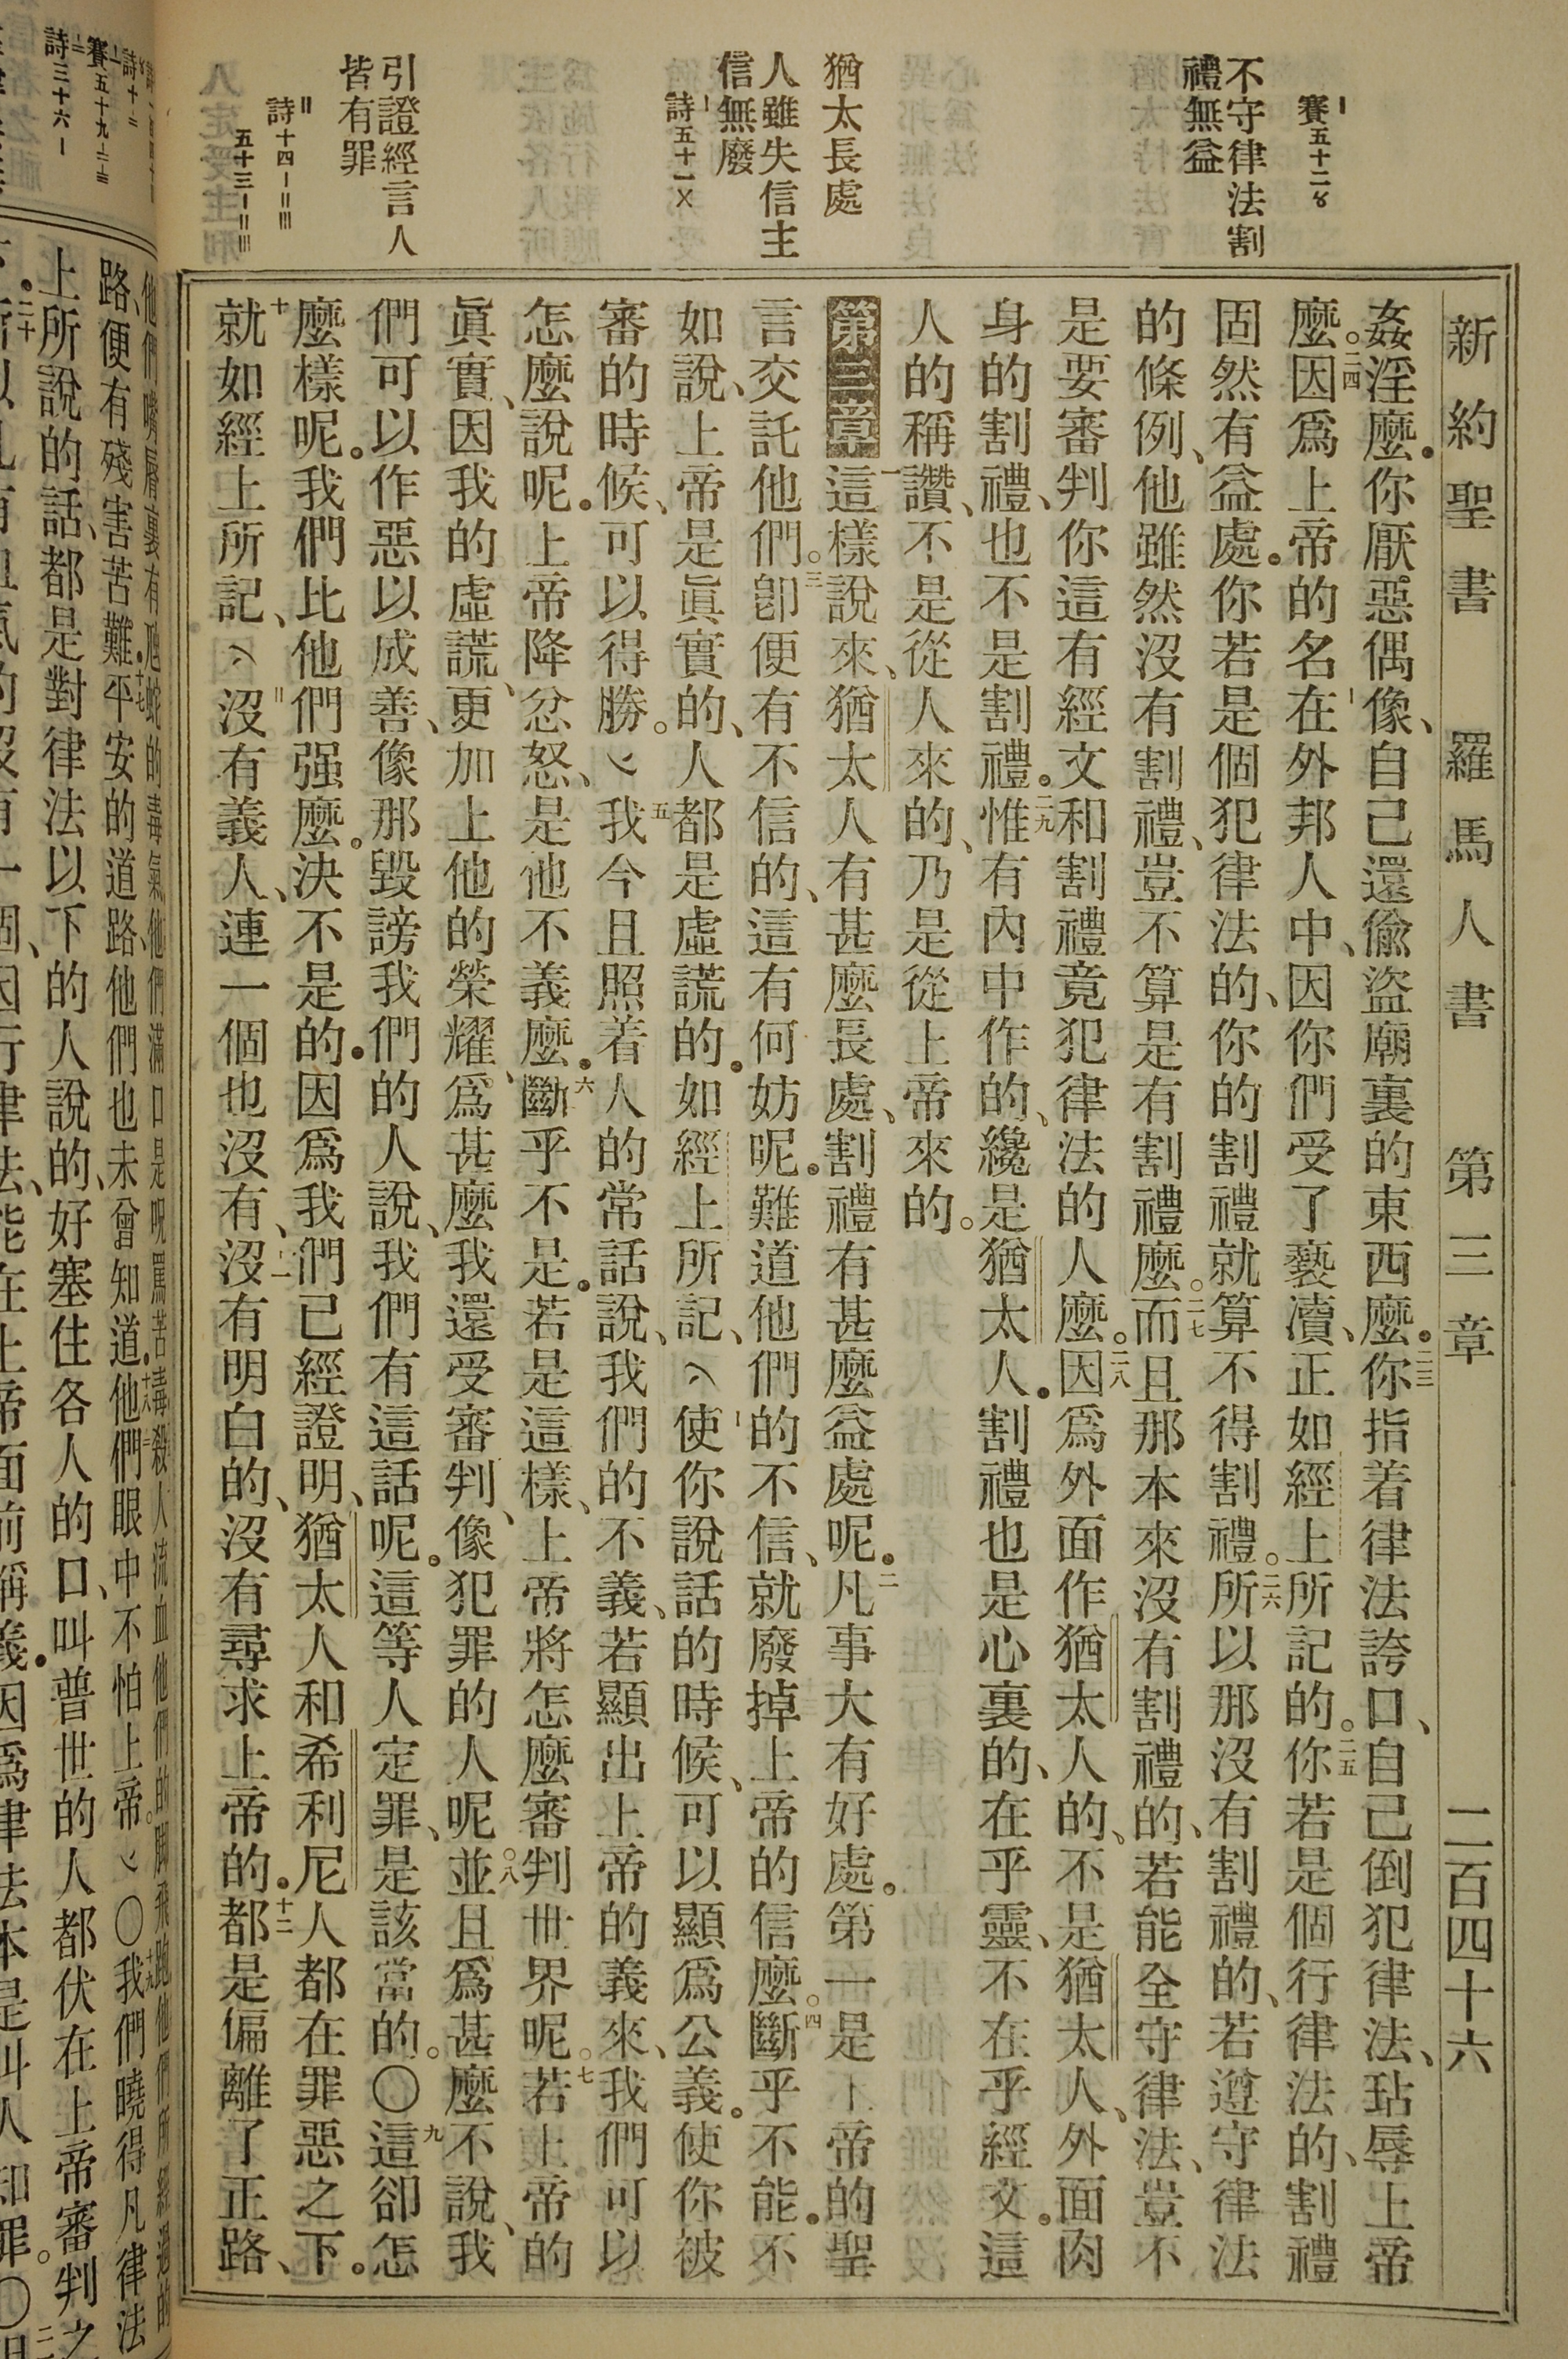 新約聖書　羅馬人書　第三章　二百四十六
賽五十二〥
不守律法割
禮無益
猶太長處
人雖失信主
信無廢
詩五十一〤
引證經言人
皆有罪
詩十四〡〢〣
五十三〡〢〣
姦淫麼。你厭惡偶像、自己還偷盜廟裏的東西麼。二三你指着律法誇口、自己倒犯律法、玷辱上帝
麼。二四因爲上帝的名在外邦人中、因你們受了褻瀆、正如經上所記的。二五你若是個行律法的、割禮
固然有益處。你若是個犯律法的、你的割禮就算不得割禮。二六所以那沒有割禮的、若遵守律法
的條例、他雖然沒有割禮、豈不算是有割禮麼。二七而且那本來沒有割禮的、若能全守律法、豈不
是要審判你這有經文和割禮竟犯律法的人麼。二八因爲外面作猶太人的、不是猶太人、外面肉
身的割禮、也不是割禮。二九惟有內中作的、纔是猶太人。割禮也是心裏的、在乎靈、不在乎經文。這
人的稱讚、不是從人來的、乃是從上帝來的。
第三章一這樣說來、猶太人有甚麼長處、割禮有甚麼益處呢。二凡事大有好處。第一是上帝的聖
言交託他們。三卽便有不信的、這有何妨呢。難道他們的不信、就廢掉上帝的信麼。四斷乎不能。不
如說、上帝是眞實的、人都是虛謊的。如經上所記、使你說話的時候、可以顯爲公義。使你被
審的時候、可以得勝。五我今且照着人的常話說、我們的不義、若顯出上帝的義來、我們可以
怎麼說呢。上帝降忿怒、是他不義麼。六斷乎不是。若是這樣、上帝將怎麼審判世界呢。七若上帝的
眞實、因我的虛謊、更加上他的榮耀、爲甚麼我還受審判、像犯罪的人呢。八並且爲甚麼不說、我
們可以作惡以成善、像那毀謗我們的人說、我們有這話呢。這等人定罪、是該當的。〇九這卻怎
麼樣呢。我們比他們强麼。決不是的。因爲我們已經證明、猶太人和希利尼人都在罪惡之下。
十就如經上所記、沒有義人、連一個也沒有、十一沒有明白的、沒有尋求上帝的。十二都是偏離了正路、
詩十
賽五十九
詩三十六〡
他們嘴脣裏有虺蛇的毒氣他們滿口是呪罵苦毒殺人流血他們的脚飛跑他們所經過的
路、便有殘害苦難。十七平安的道路、他們也未曾知道。十八他們眼中不怕上帝。〇十九我們曉得凡律法
上所說的話、都是對律法以下的人說的、好塞住各人的口、叫普世的人都伏在上帝審判之